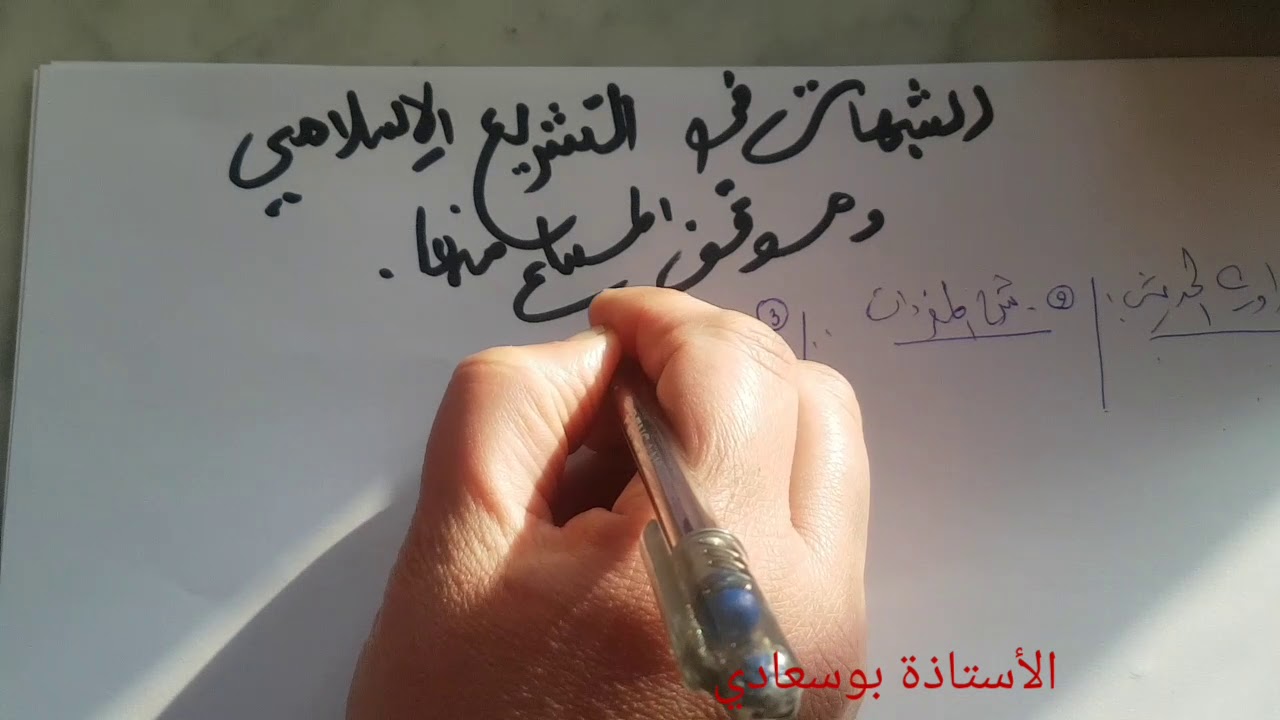 الشبهات في التشريع الإسلامي
وموقف المسلم منها.
② - شرح المفردات
③
الأستاذة بوسعادي